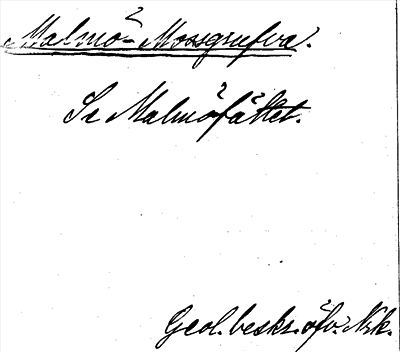 Malmö-Mossgrufva.
Se Malmöfältet.
Geol. beskr. öfv. Nrk.